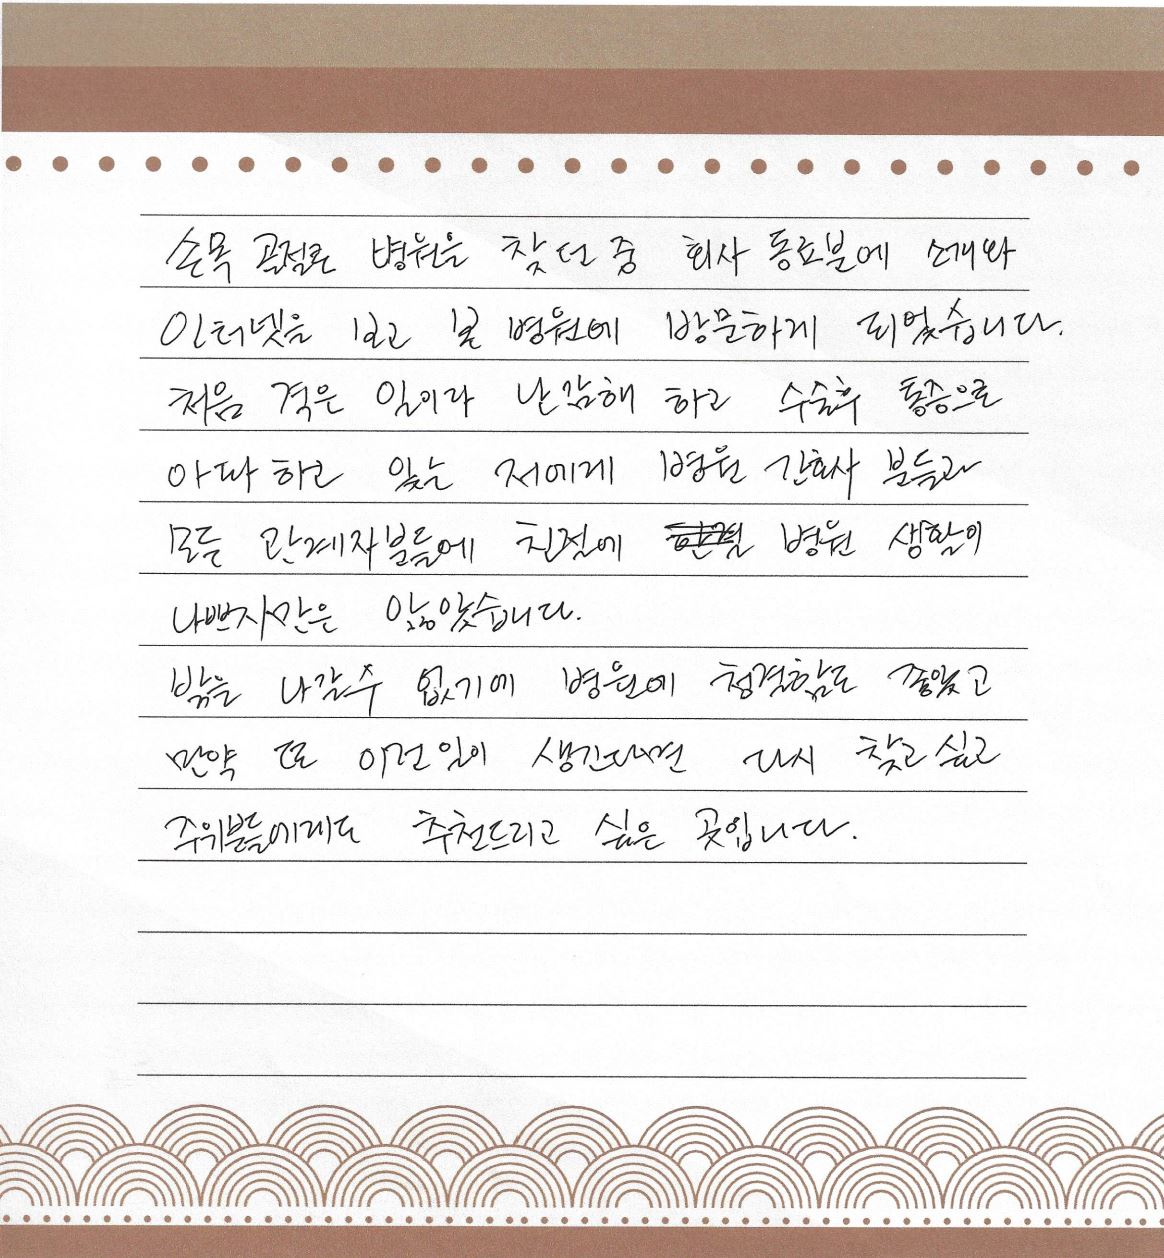 손목 골절로 병원을 찾던 중 회사 동료분에 소개와
인터넷을 보고 본 병원에 방문하게 되었습니다.
처음 격은 일이라 난감해 하고 수술후 통증으로
아파 하고 있는 저에게 병원 간호사 분들과
모든 관계자분들에 친절에 병원 생활이
나쁘지만은 않았습니다.
밖을 나갈수 없기에 병원에 청결함도 좋았고
만약 또 이런 일이 생긴다면 다시 찾고 싶고
주위분들에게도 추천드리고 싶은 곳입니다.